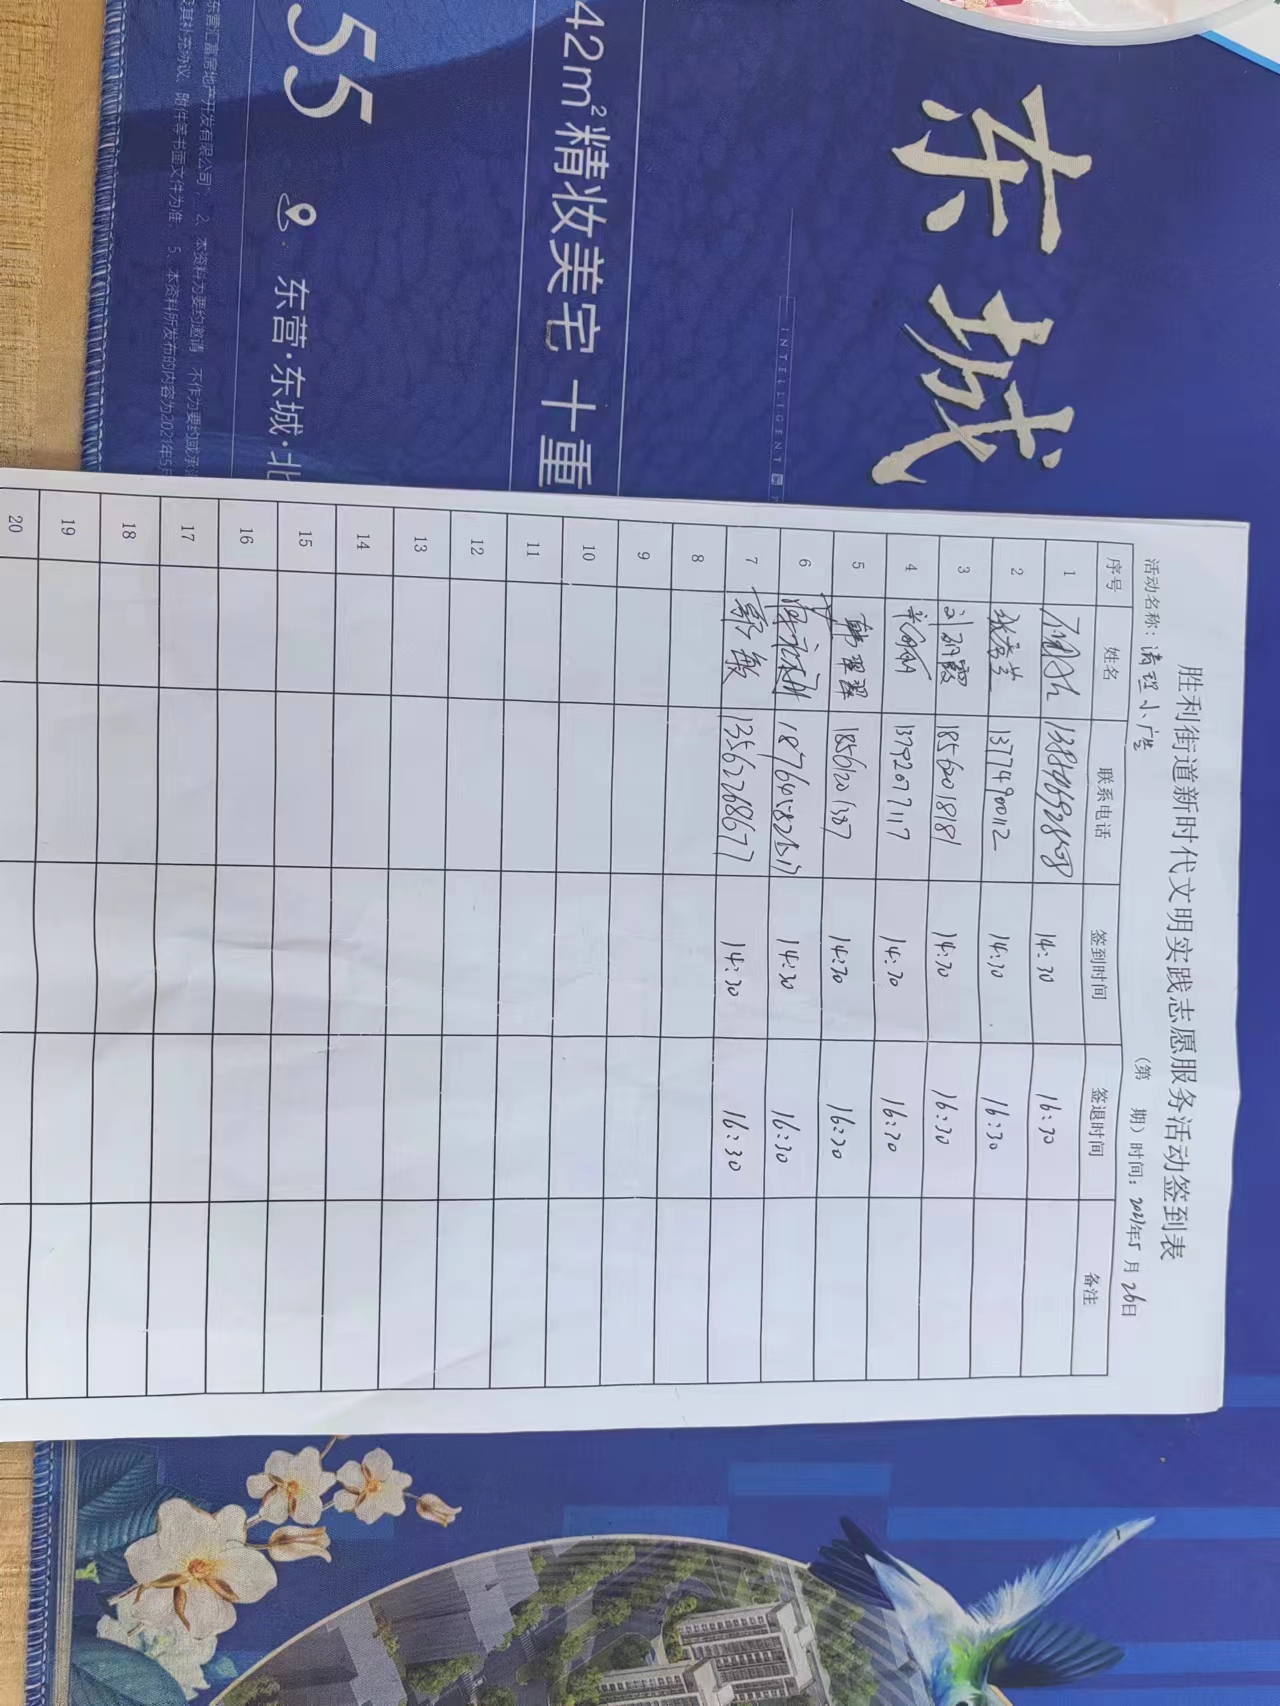 东城
INTELLIGENT
42m²精妆美宅 十重
55
东营·东城·北
东营汇富房地产开发有限公司"; 2、本资料为要约邀请,不作为要约或承
及其补充协议、附件等书面文件为准。 5、本资料所发布的内容为2021年5月
胜利街道新时代文明实践志愿服务活动签到表
活动名称: 清理小广告 (第 期) 时间: 2021年5月26日
序号 姓名 联系电话 签到时间 签退时间 备注
1 14:30 16:30
2 张秀兰 13774900112 14:30 16:30
3 刘丽霞 18562018181 14:30 16:30
4 13792077117 14:30 16:30
5 韩翠翠 18561201387 14:30 16:30
6 14:30 16:30
7 郭敏 13562268677 14:30 16:30
8
9
10
11
12
13
14
15
16
17
18
19
20